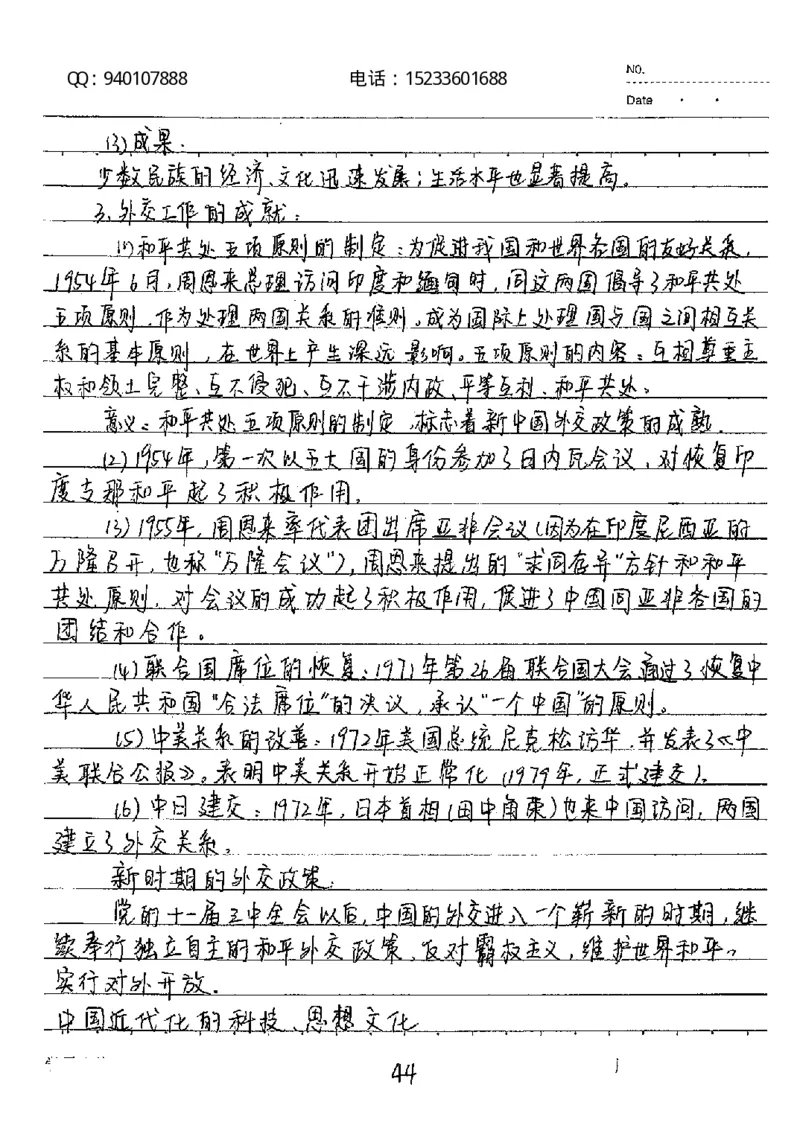 QQ：940107888 电话：15233601688 NO.
Date
(3)成果：
少数民族的经济、文化迅速发展；生活水平也显著提高。
3.外交工作的成就：
(1)和平共处五项原则的制定：为促进我国和世界各国的友好关系，
1954年6月，周恩来总理访问印度和缅甸时，同这两国倡导了和平共处
五项原则，作为处理两国关系的准则。成为国际上处理国与国之间相互关
系的基本原则，在世界上产生深远影响。五项原则的内容：互相尊重主
权和领土完整、互不侵犯、互不干涉内政、平等互利、和平共处。
意义：和平共处五项原则的制定，标志着新中国外交政策的成熟。
(2)1954年，第一次以五大国的身份参加了日内瓦会议，对恢复印
度支那和平起了积极作用。
(3)1955年，周恩来率代表团出席亚非会议(因为在印度尼西亚的
万隆召开，也称“万隆会议”)，周恩来提出的“求同存异”方针和和平
共处原则，对会议的成功起了积极作用，促进了中国同亚非各国的
团结和合作。
(4)联合国席位的恢复：1971年第26届联合国大会通过了恢复中
华人民共和国“合法席位”的决议，承认“一个中国”的原则。
(5)中美关系的改善：1972年美国总统尼克松访华，并发表了《中
美联合公报》。表明中美关系开始正常化(1979年，正式建交)。
(6)中日建交：1972年，日本首相(田中角荣)也来中国访问，两国
建立了外交关系。
新时期的外交政策：
党的十一届三中全会以后，中国的外交进入一个崭新的时期，继
续奉行独立自主的和平外交政策，反对霸权主义，维护世界和平。
实行对外开放。
中国近代化的科技、思想文化
44